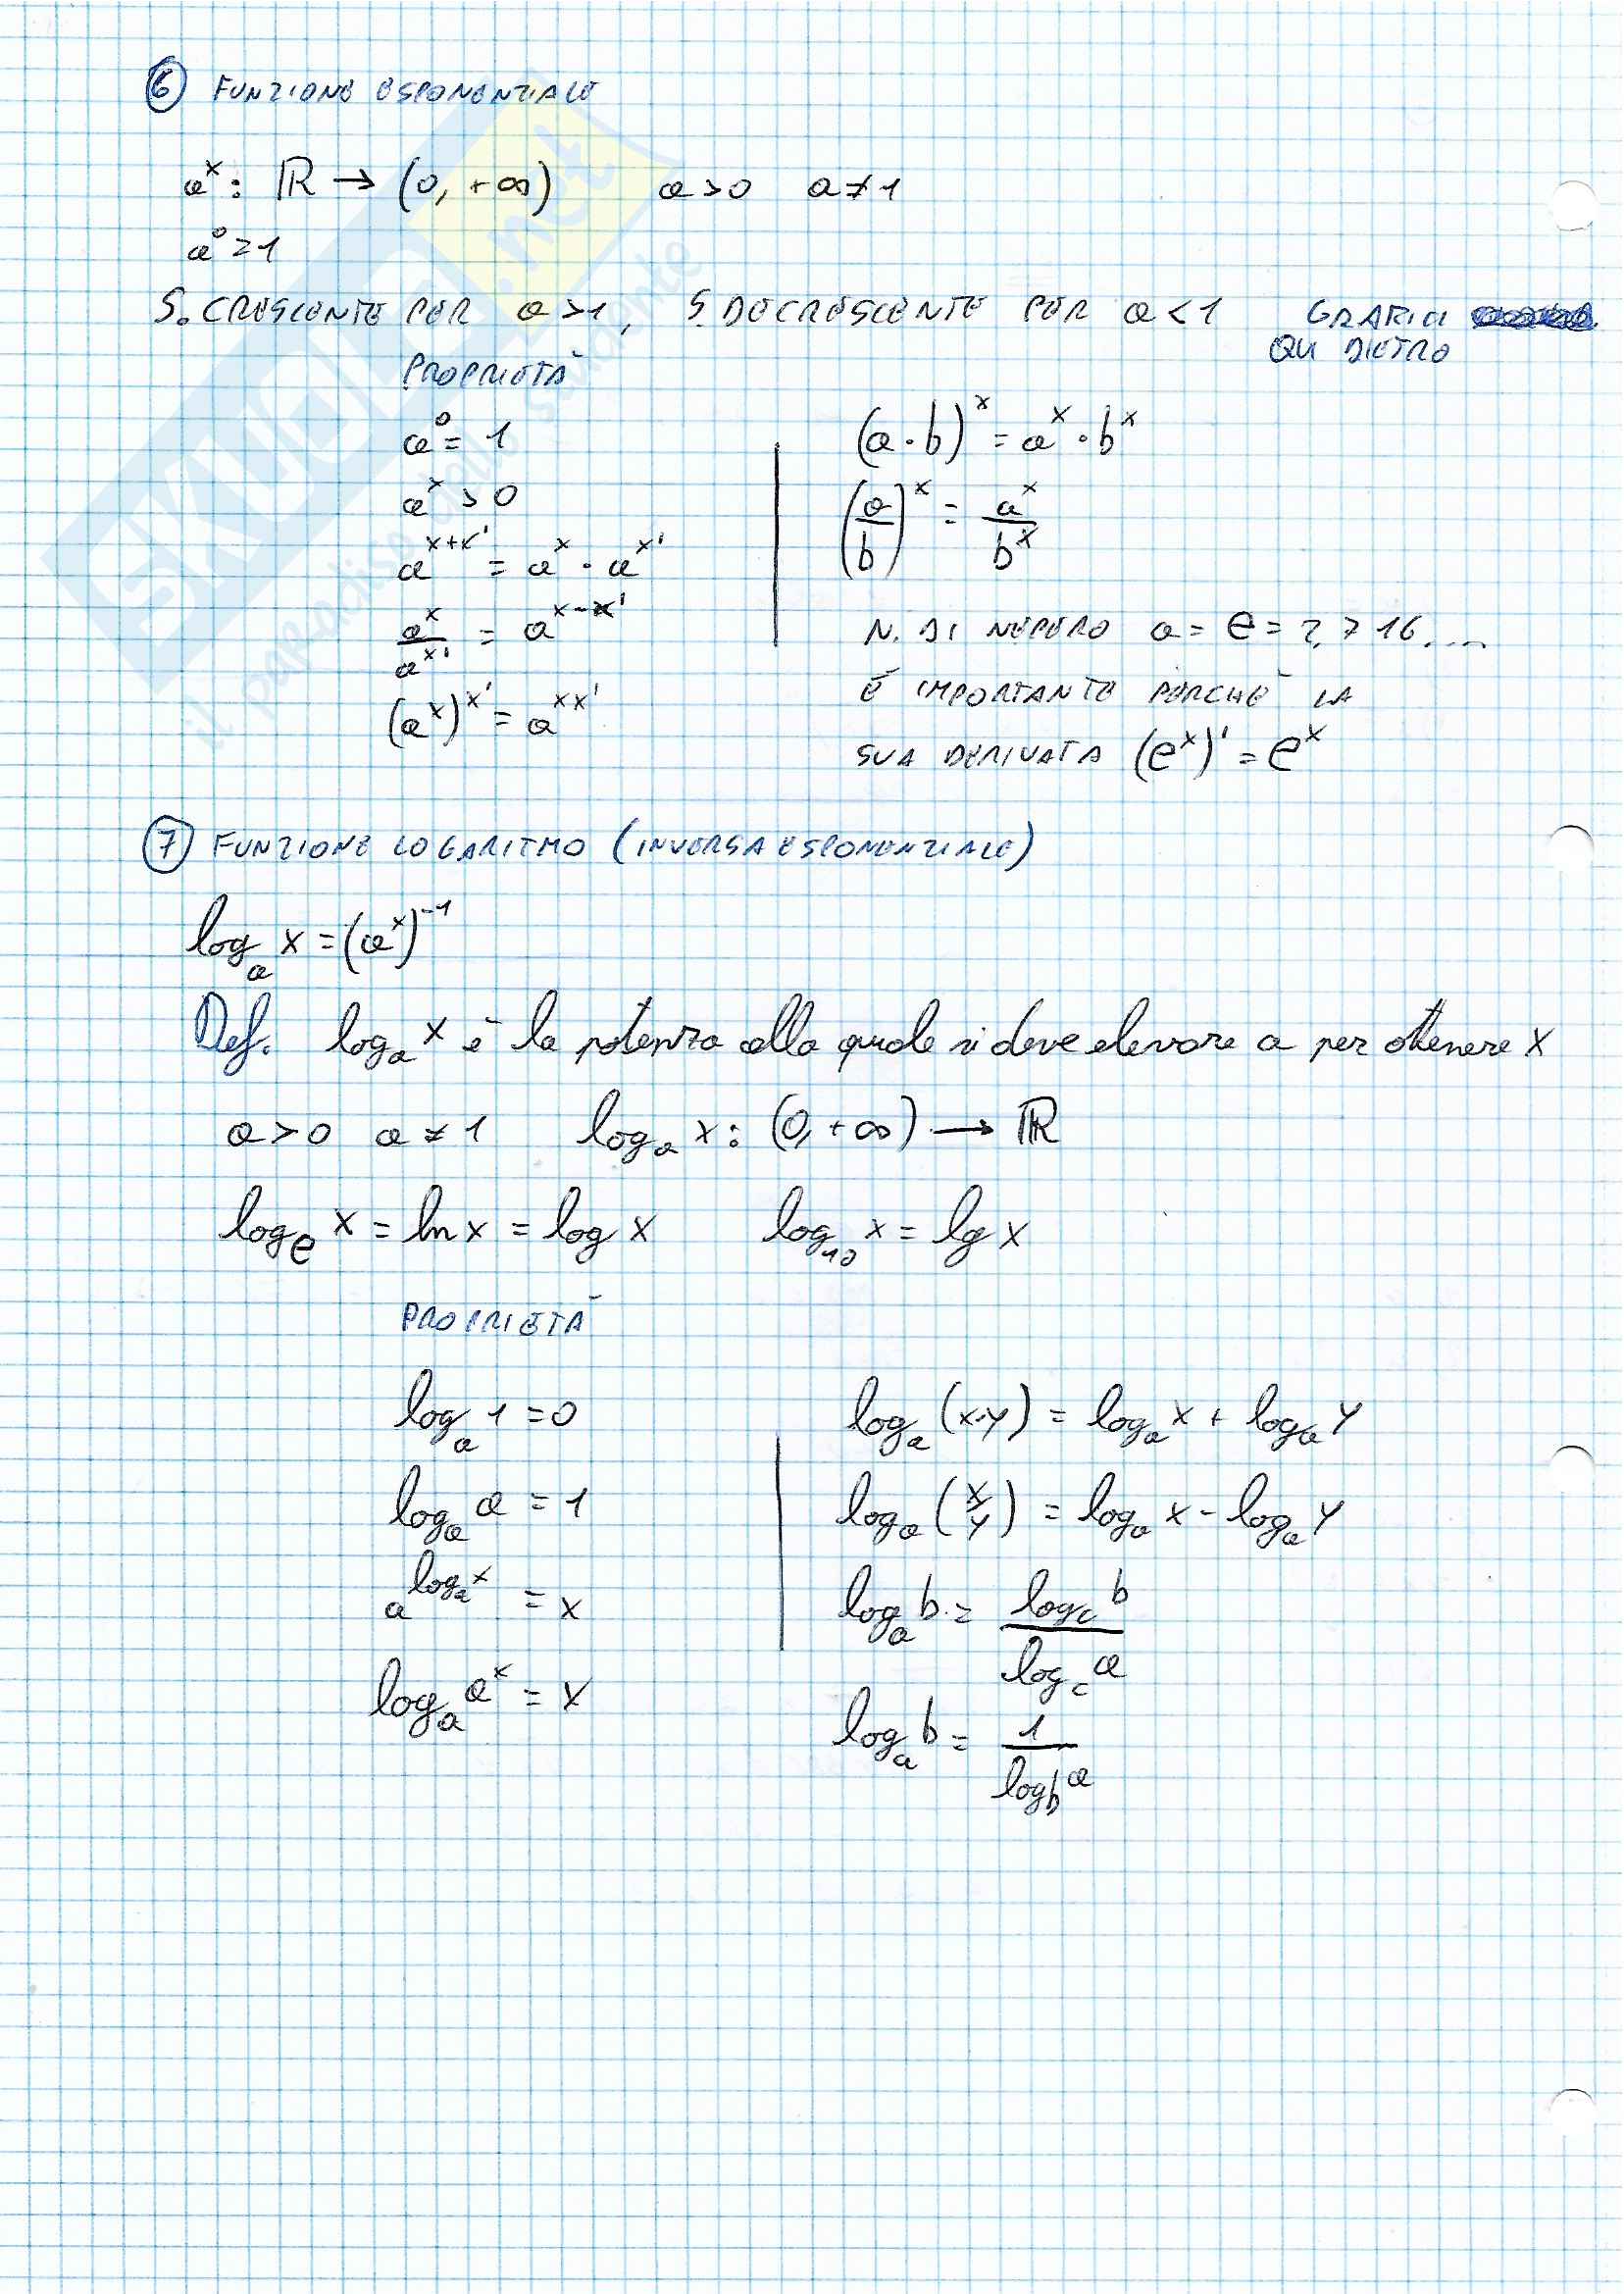 6 FUNZIONE ESPONENZIALE
a^x: ℝ → (0, +∞) a>0 a≠1
a^0=1
S. CRESCENTE PER a>1, S. DECRESCENTE PER a<1 GRAFICI
QUI DIETRO
PROPRIETÀ
a^0 = 1
a^x > 0
a^(x+x') = a^x · a^x'
a^x / a^x' = a^(x-x')
(a^x)^x' = a^(xx')
(a·b)^x = a^x · b^x
(a/b)^x = a^x / b^x
N. DI NEPERO a = e = 2,716....
É IMPORTANTE PERCHÈ LA
SUA DERIVATA (e^x)' = e^x
7 FUNZIONE LOGARITMO (INVERSA ESPONENZIALE)
log_a x = (a^x)^-1
Def. log_a x è la potenza alla quale si deve elevare a per ottenere x
a>0 a≠1 log_a x: (0, +∞) → ℝ
log_e x = ln x = log x log_10 x = lg x
PROPRIETÀ
log_a 1 = 0
log_a a = 1
a^(log_a x) = x
log_a a^x = x
log_a (x·y) = log_a x + log_a y
log_a (x/y) = log_a x - log_a y
log_a b = log_c b / log_c a
log_a b = 1 / log_b a
SKUOLA.net
il paradiso dello studente